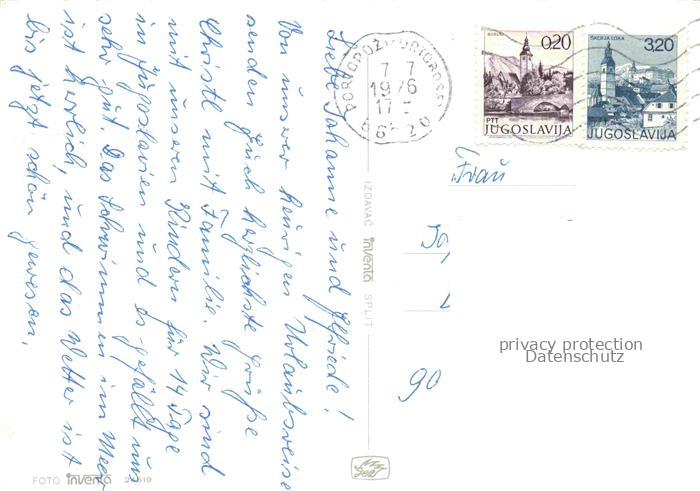 Liebe Johanne und Elfriede!
Von unserer heurigen Urlaubsreise
senden Euch herzlichste Grüße
Christl mit Familie. Wir sind
mit unseren Kindern für 14 Tage
in Jugoslavien und es gefällt uns
sehr gut. Das Schwimmen im Meer
ist herrlich, und das Wetter ist
bis jetzt schön gewesen.
FOTO inventa
IZDAVAČ inventa SPLIT
PORTOROŽ PORTOROSE
7 7
1976
17
66320
BOHINJ
0.20
PTT
JUGOSLAVIJA
ŠKOFJA LOKA
3.20
JUGOSLAVIJA
Frau
90
privacy protection
Datenschutz